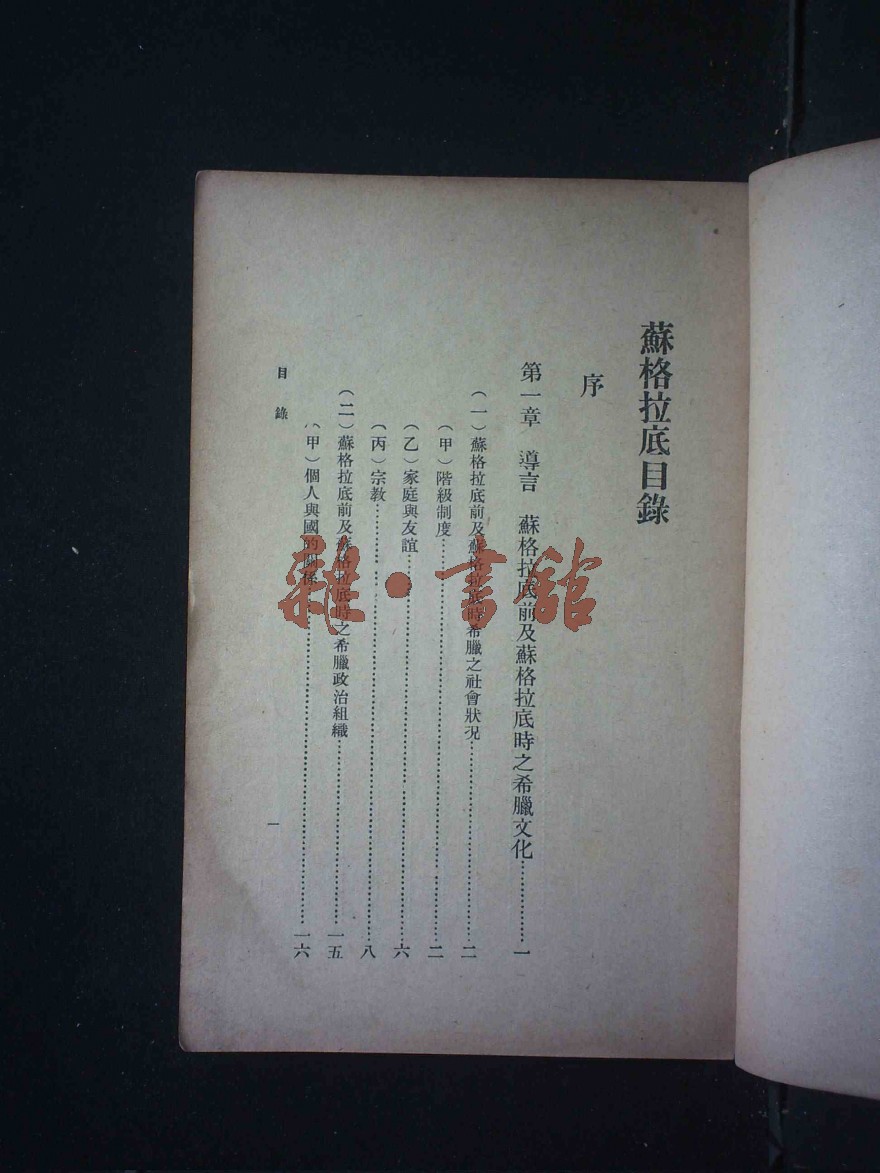 蘇格拉底目錄
序
第一章 導言 蘇格拉底前及蘇格拉底時之希臘文化……………一
（一）蘇格拉底前及蘇格拉底時希臘之社會狀況……………二
（甲）階級制度……………二
（乙）家庭與友誼……………六
（丙）宗教……………八
（二）蘇格拉底前及蘇格拉底時之希臘政治組織……………一五
（甲）個人與國的關係……………一六
目錄
一
雜·書館